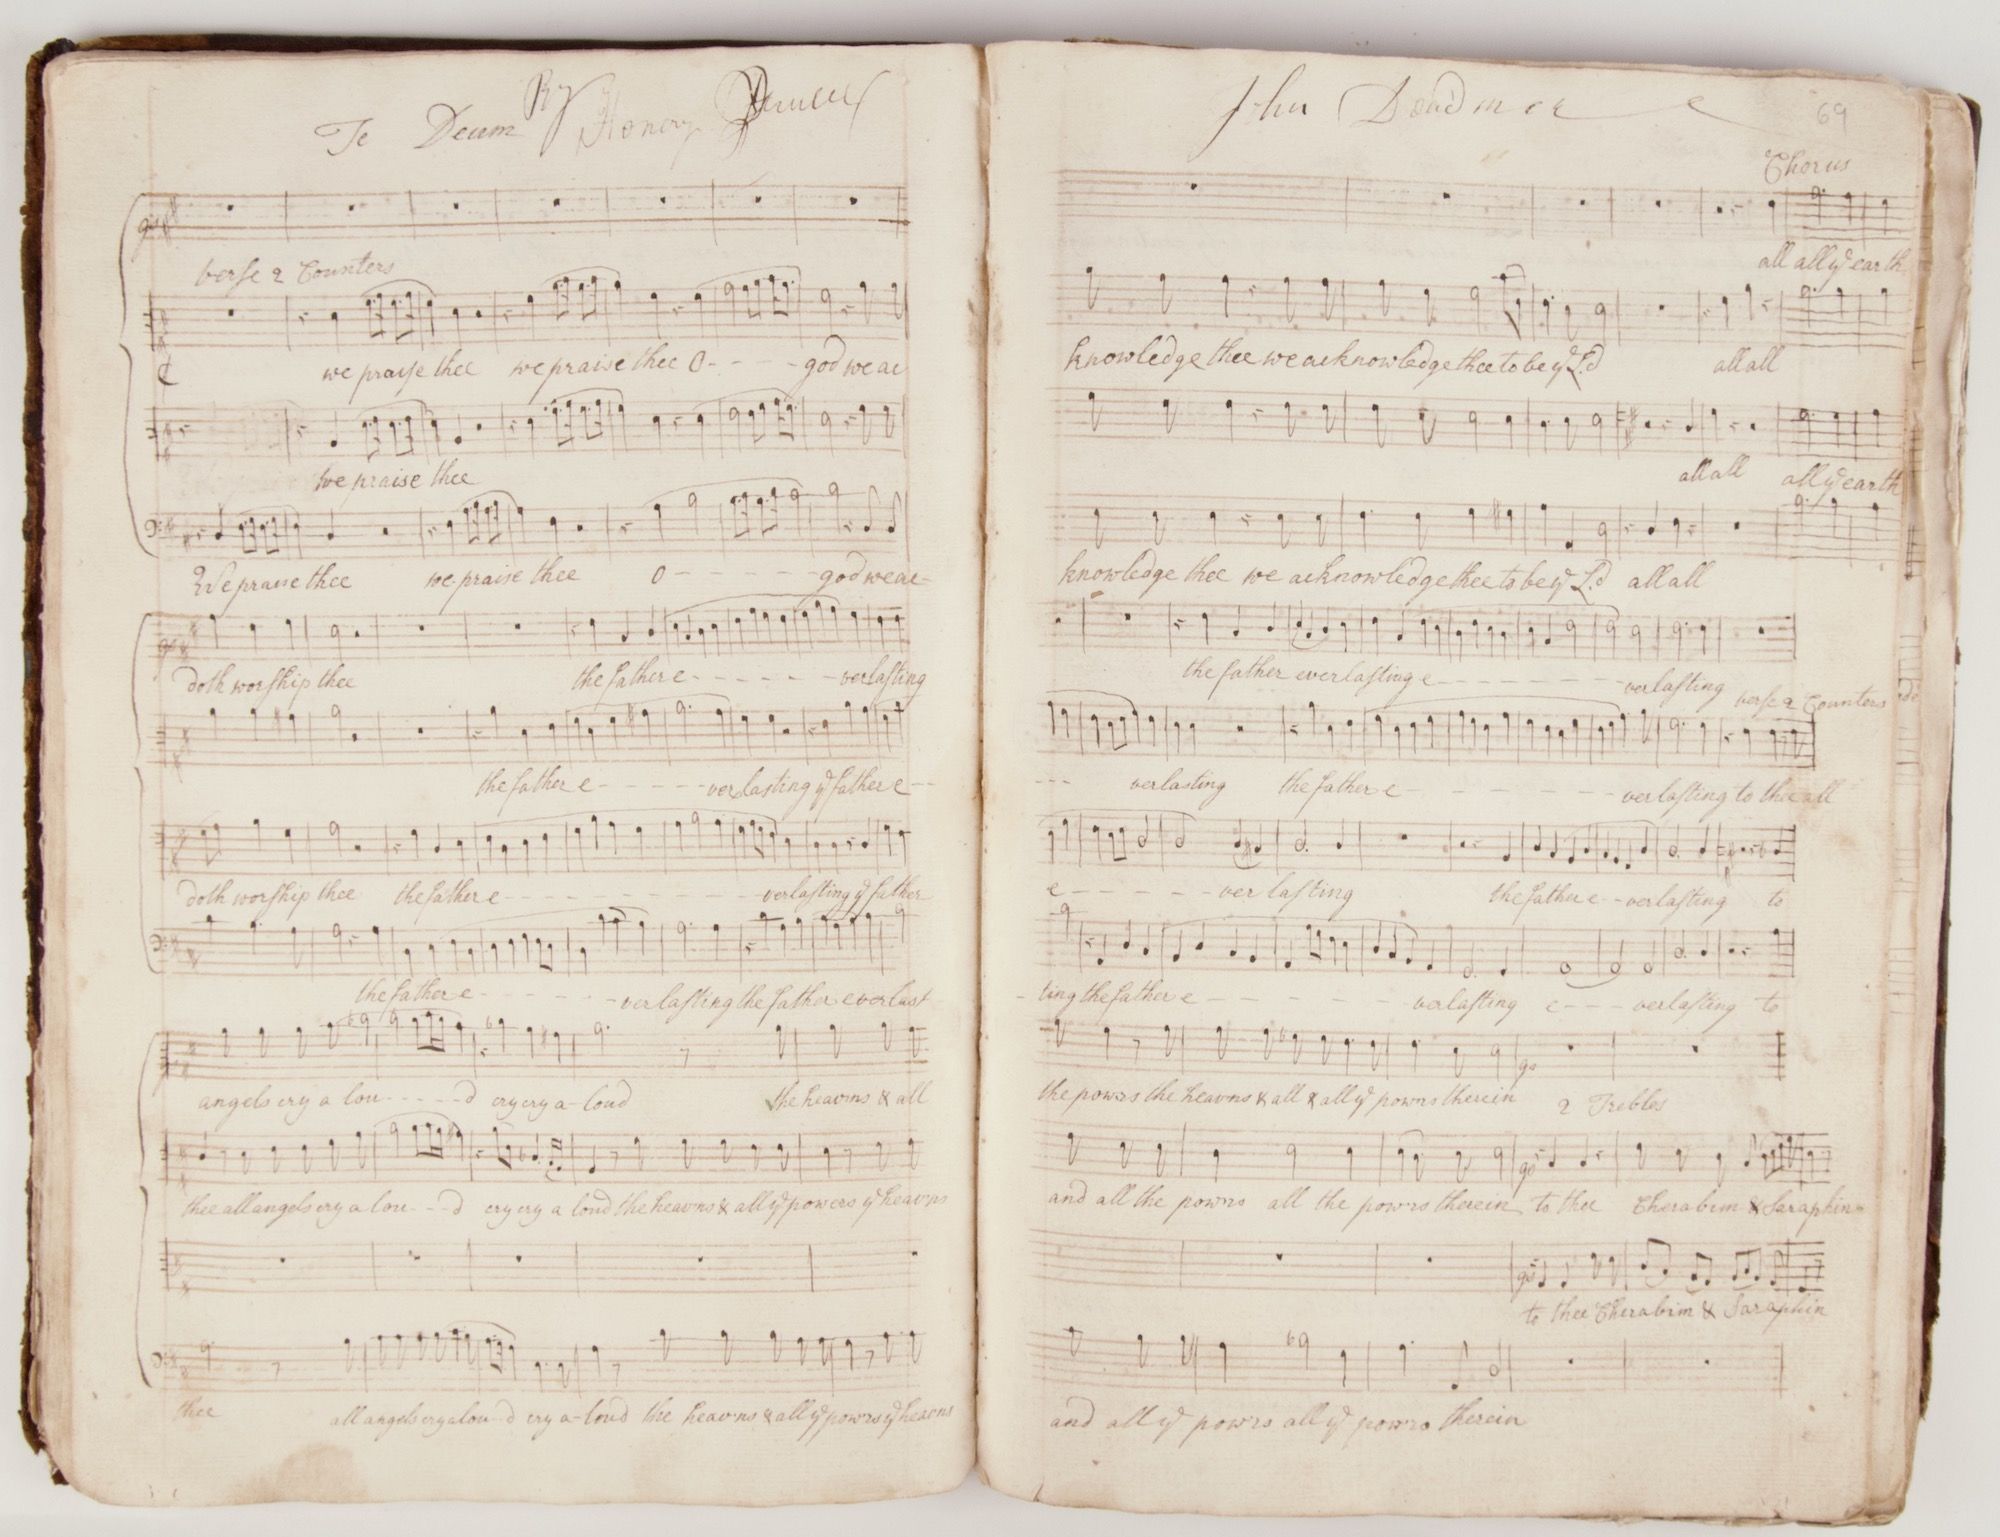 Te Deum By Henery
verse 2 Counters
we prayse thee we praise thee O - - - - god we ac
we praise thee
We praise thee we praise thee O - - - - - - god we ac-
doth worship thee the father e - - - - - - verlasting
the father e - - - - - verlasting yᵉ father e - -
doth worship thee the father e - - - - - - - - - verlasting yᵉ father
the father e - - - - - - verlasting the father everlast
angels cry a lou - - - - - d cry cry a - loud the heavns & all
thee all angels cry a lou - - - d cry cry a loud the heavns & all yᵉ powers yᵉ heavns
thee all angels cry a lou - - d cry a - loud the heavns & all yᵉ powrs yᵉ heavns
John Deadmer
69
Chorus
all all yᵉ earth
knowledge thee we acknowledge thee to be yᵉ Ld all all
all all all yᵉ earth
knowledge thee we acknowledge thee to be yᵉ Ld all all
the father everlasting e - - - - - - - - verlasting
verse 2 Counters
- - - verlasting the father e - - - - - - - verlasting to thee all
e - - - - - ver lasting the father e - - verlasting to
- ting the father e - - - - - - - verlasting e - - - verlasting to
the powrs the heavns & all & all yᵉ powrs therein
2 Trebles
and all the powrs all the powrs therein to thee Cherabim & Saraphin
to thee Cherabim & Saraphin
and all yᵉ powrs all yᵉ powrs therein